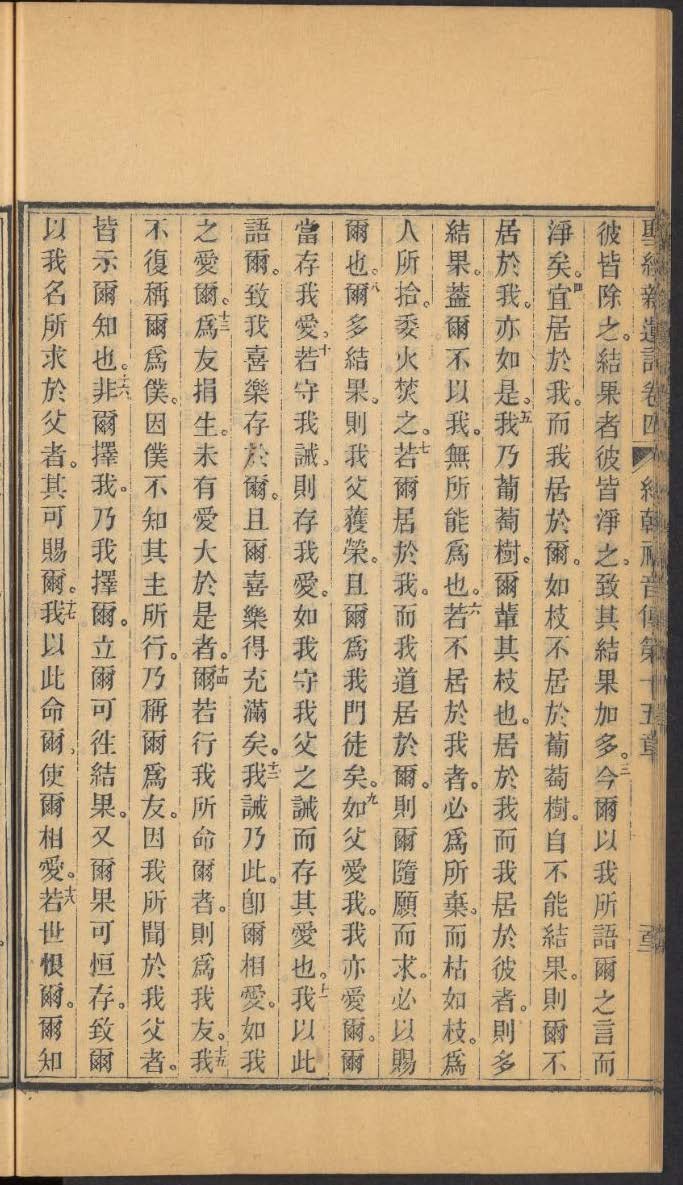 聖經新遺詔卷四 約翰福音傳第十五章
彼皆除之。結果者彼皆淨之。致其結果加多。三今爾以我所語爾之言而
淨矣。四宜居於我。而我居於爾。如枝不居於葡萄樹。自不能結果。則爾不
居於我。亦如是。五我乃葡萄樹。爾輩其枝也。居於我而我居於彼者。則多
結果。葢爾不以我。無所能爲也。六若不居於我者。必爲所棄。而枯如枝。爲
人所拾。委火焚之。七若爾居於我。而我道居於爾。則爾隨願而求。必以賜
爾也。八爾多結果。則我父獲榮。且爾爲我門徒矣。九如父愛我。我亦愛爾。爾
當存我愛。十若守我誡。則存我愛。如我守我父之誡而存其愛也。十一我以此
語爾。致我喜樂存於爾。且爾喜樂得充滿矣。十二我誡乃此。卽爾相愛。如我
之愛爾。十三爲友捐生。未有愛大於是者。十四爾若行我所命爾者。則爲我友。十五我
不復稱爾爲僕。因僕不知其主所行。乃稱爾爲友。因我所聞於我父者。
皆示爾知也。十六非爾擇我。乃我擇爾。立爾可徃結果。又爾果可恒存。致爾
以我名所求於父者。其可賜爾。十七我以此命爾、使爾相愛。十八若世恨爾。爾知